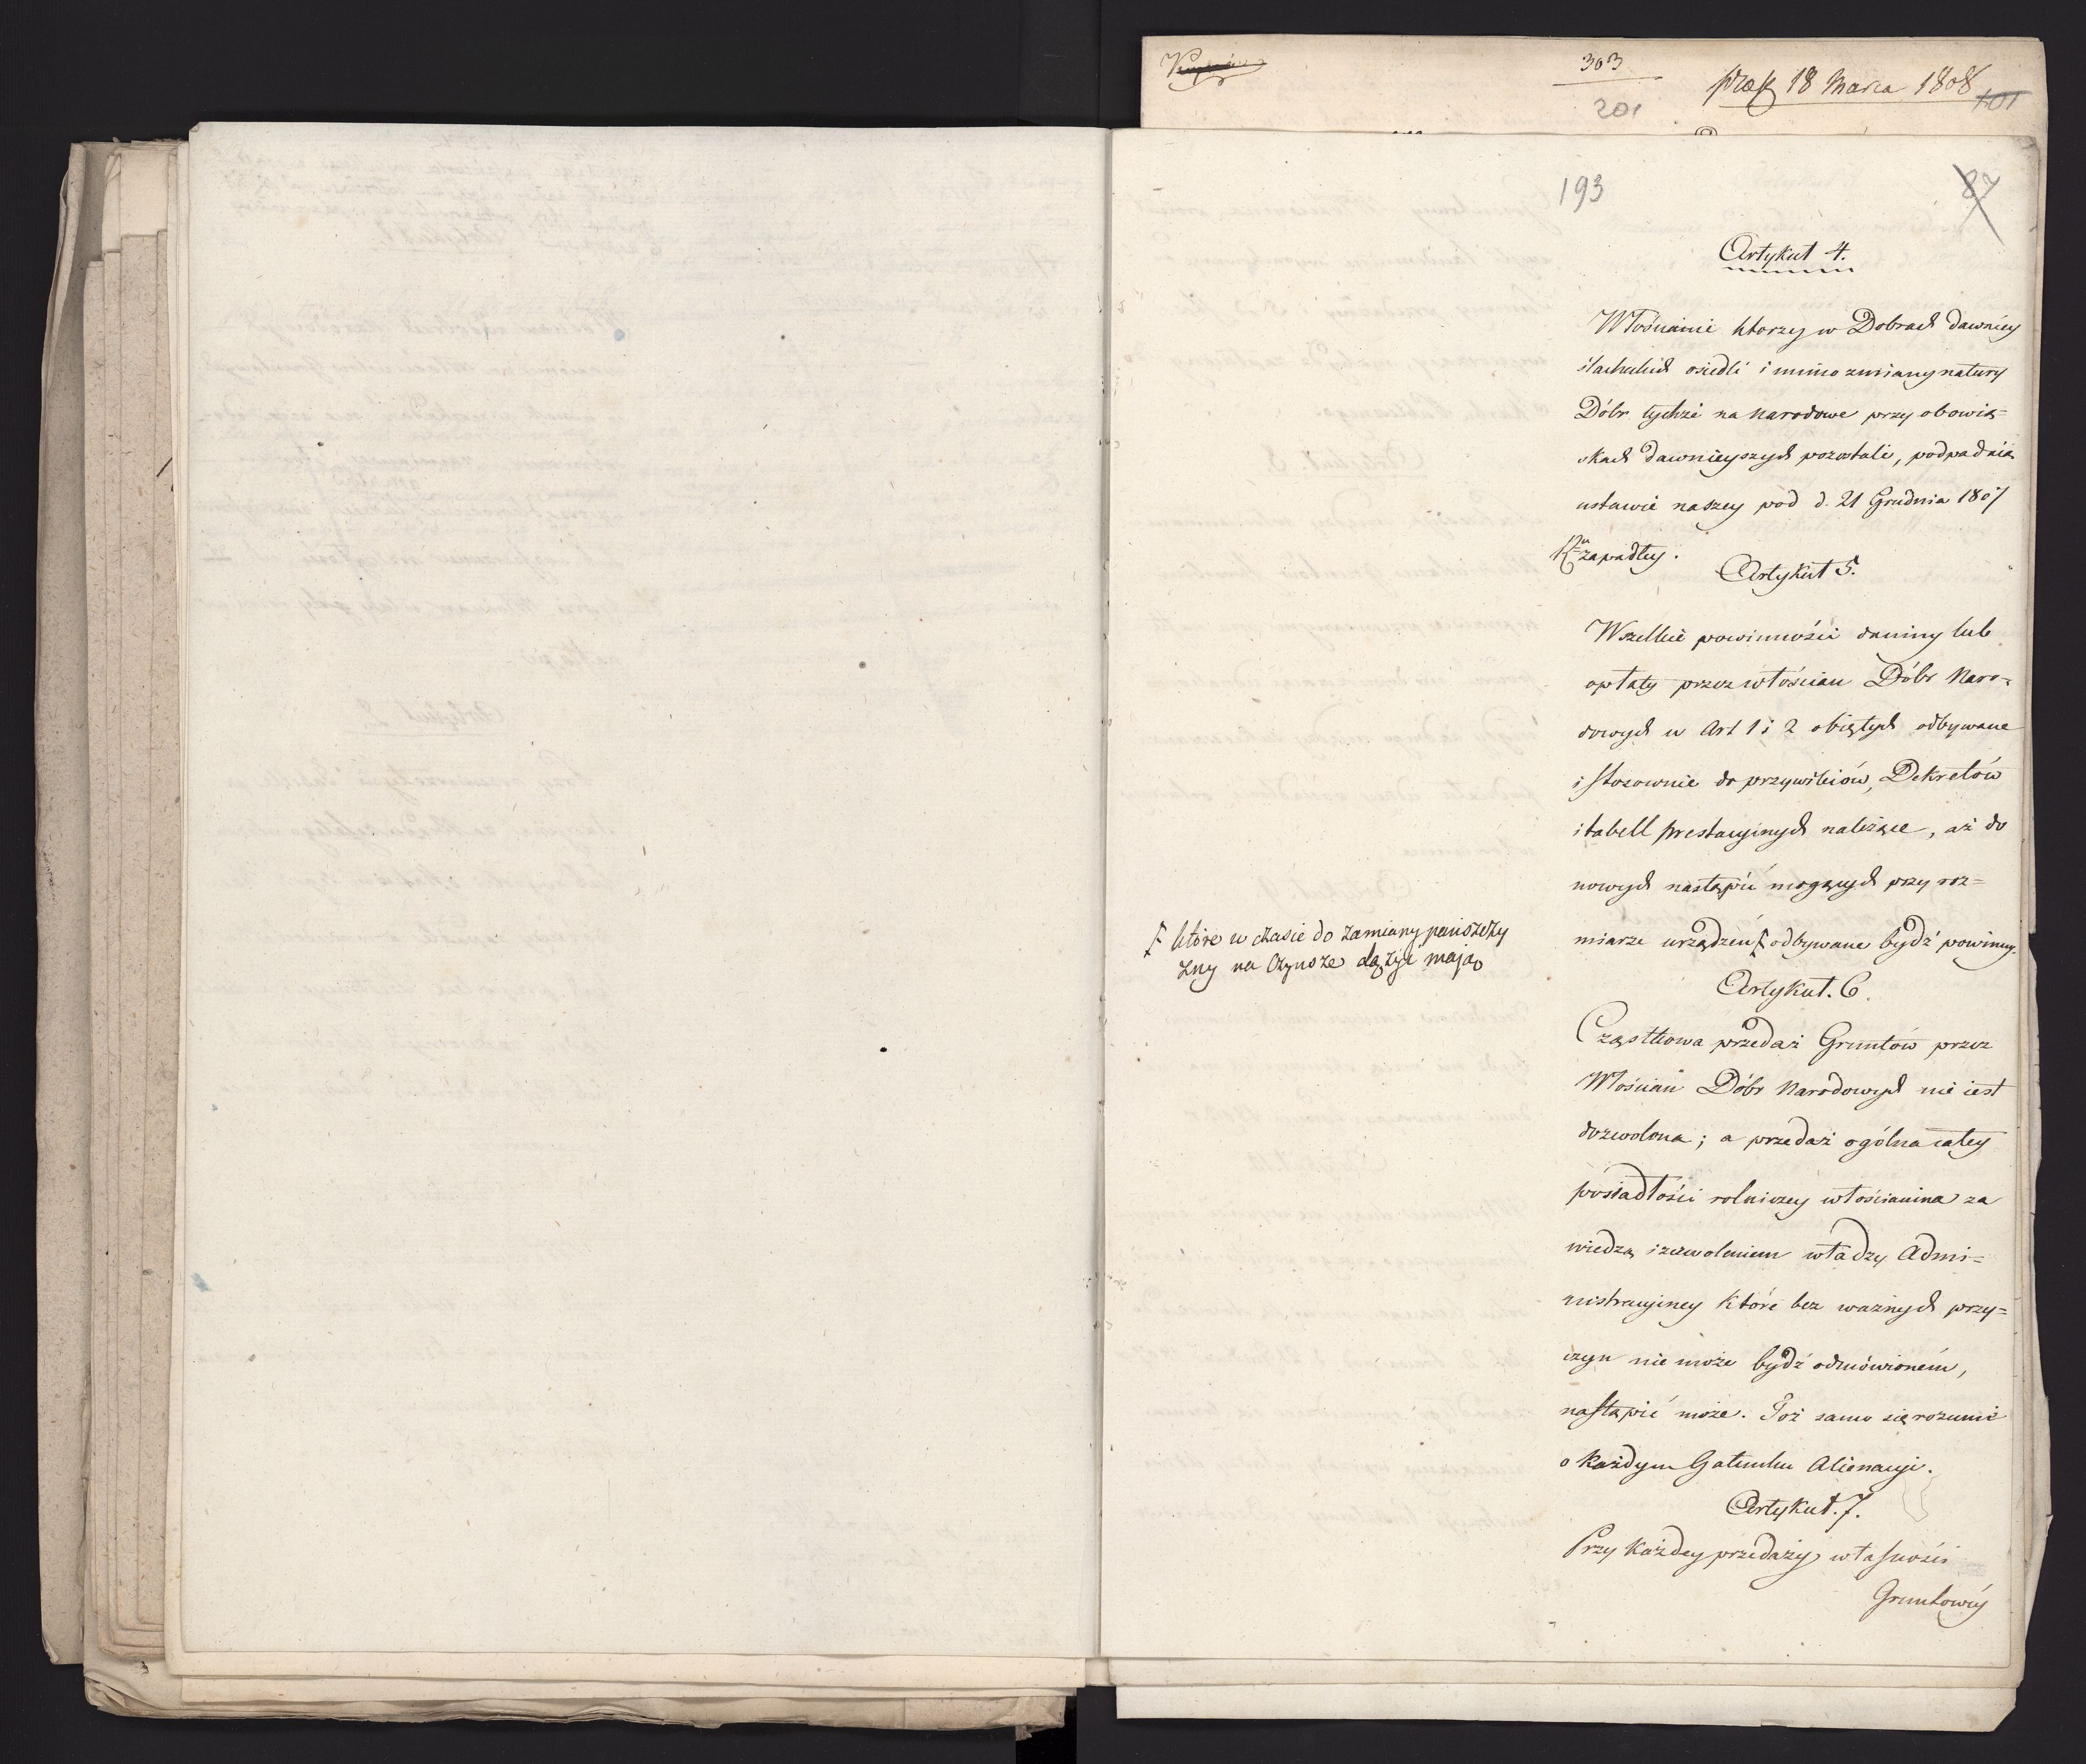 303
201
18 Marca 1808
101
193
87
Artykuł 4.
Włościanie ktorzy w Dobrach dawniey
ślacheckich osiedli i mimo zmiany natury
Dóbr tychże na narodowe przy obowią=
skach dawnieyszych pozostali, podpadaią
ustawie naszey pod d. 21 Grudnia 1807
zapadłey.
Artykuł 5.
Wszelkie powinności daniny lub
opłaty przez włościan Dóbr Naro=
dowych w Art 1 i 2 obiętych odbywane
i stosownie do przywileiów, Dekretów
i tabell prestacyinych należące, aż do
nowych nastąpić mogących przy roz=
miarze urządzeń ⨍ odbywane bydź powinny.
⨍ które w czasie do zamiany pańszczy
zny na Czynsze dążyć mają
Artykuł. 6.
Cząstkowa przedaż Gruntów przez
Włościan Dóbr Narodowych nie iest
dozwolona; a przedaż ogólna całey
posiadłości rolniczey włościanina za
wiedzą i zezwoleniem władzy Admi=
nistracyiney które bez ważnych przy=
czyn nie może bydź odmówionem,
nastąpić może. Toż samo się rozumie
o każdym Gatunku Alienacyi.
Artykuł. 7.
Przy każdey przedaży własności
Gruntowéy